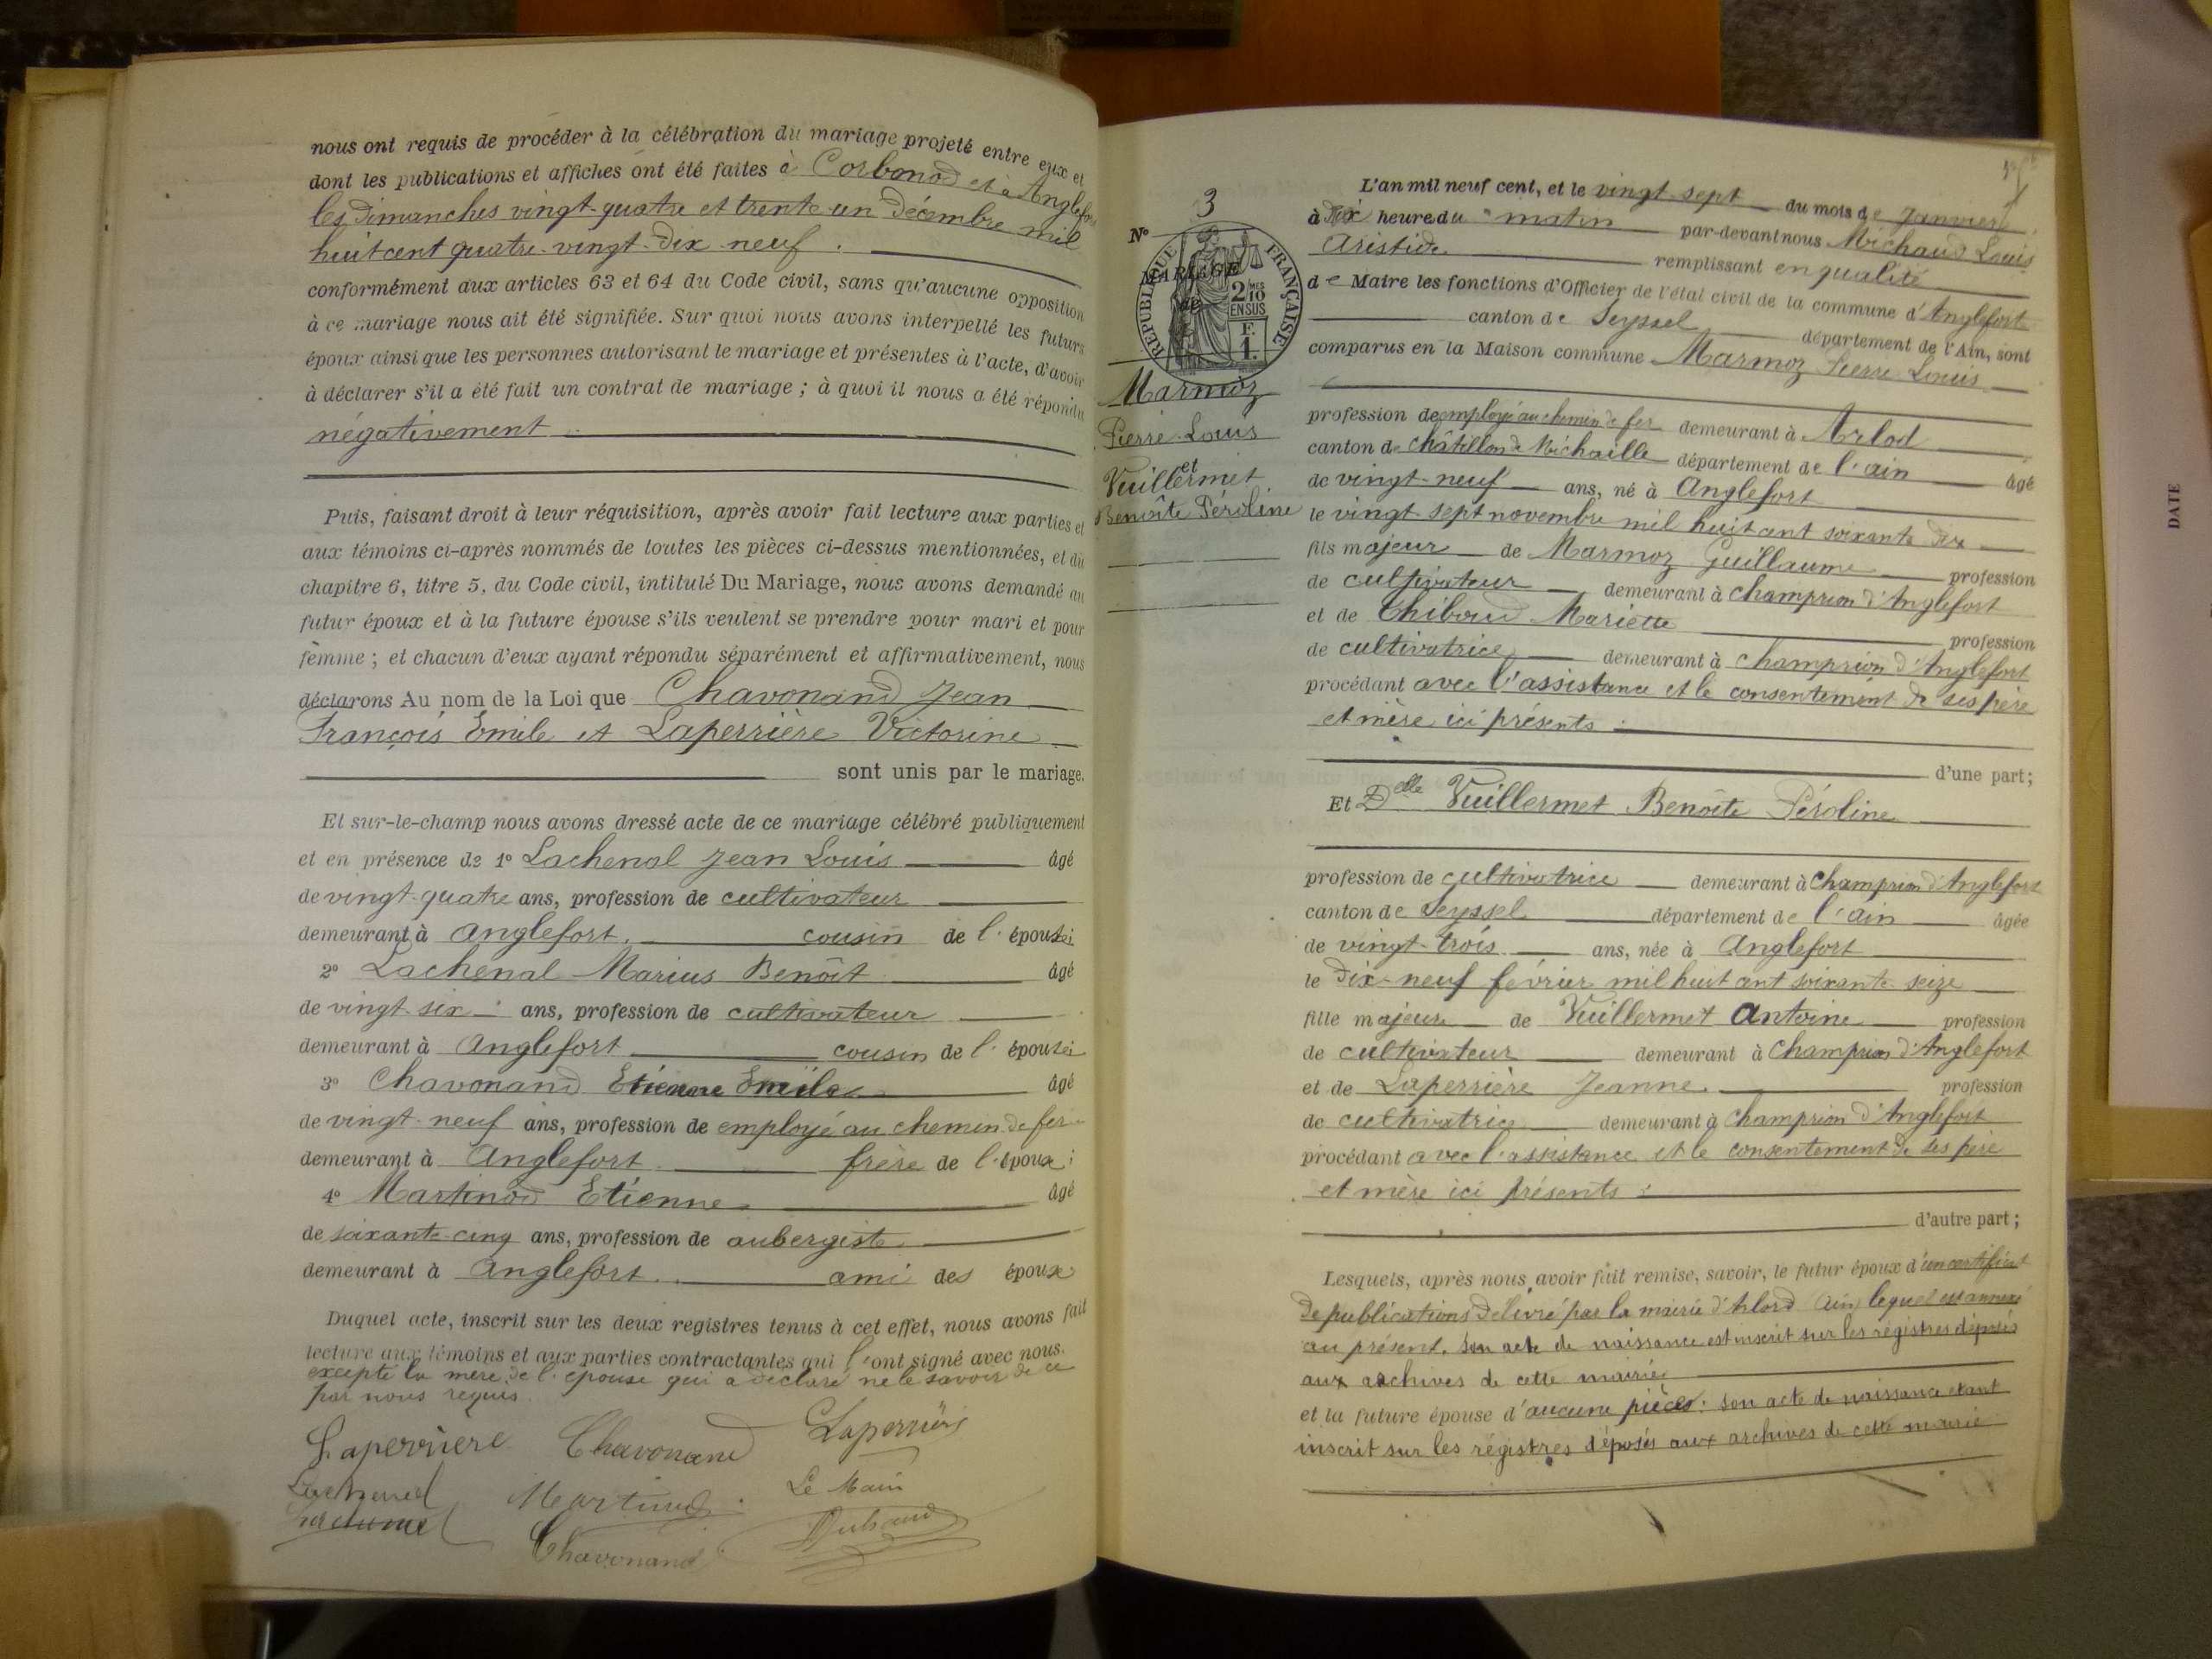 nous ont requis de procéder à la célébration du mariage projeté entre eux et
dont les publications et affiches ont été faites à Corbonod et à Anglefort
les dimanches vingt-quatre et trente-un décembre mil
huit cent quatre-vingt-dix-neuf.
conformément aux articles 63 et 64 du Code civil, sans qu'aucune opposition
à ce mariage nous ait été signifiée. Sur quoi nous avons interpellé les futurs
époux ainsi que les personnes autorisant le mariage et présentes à l'acte, d'avoir
à déclarer s'il a été fait un contrat de mariage ; à quoi il nous a été répondu
négativement
Puis, faisant droit à leur réquisition, après avoir fait lecture aux parties et
aux témoins ci-après nommés de toutes les pièces ci-dessus mentionnées, et du
chapitre 6, titre 5, du Code civil, intitulé Du Mariage, nous avons demandé au
futur époux et à la future épouse s'ils veulent se prendre pour mari et pour
femme ; et chacun d'eux ayant répondu séparément et affirmativement, nous
déclarons Au nom de la Loi que Chavonand Jean
François Emile et Laperrière Victorine
sont unis par le mariage.
Et sur-le-champ nous avons dressé acte de ce mariage célébré publiquement
et en présence de 1° Lachenal Jean Louis âgé
de vingt-quatre ans, profession de cultivateur
demeurant à Anglefort. cousin de l'épouse;
2° Lachenal Marius Benoît âgé
de vingt-six ans, profession de cultivateur
demeurant à Anglefort cousin de l'épouse;
3° Chavonand Etienne Emile âgé
de vingt-neuf ans, profession de employé au chemin de fer
demeurant à Anglefort frère de l'époux;
4° Martinod Etienne âgé
de soixante-cinq ans, profession de aubergiste
demeurant à Anglefort. ami des époux
Duquel acte, inscrit sur les deux registres tenus à cet effet, nous avons fait
lecture aux témoins et aux parties contractantes qui l'ont signé avec nous.
excepté la mère de l'épouse qui a déclaré ne le savoir de ce
par nous requis.
Laperrière Chavonand Laperrière
Lachenal Martinod Le Maire
Lachenal Chavonand
N° 3
RÉPUBLIQUE FRANÇAISE
2/10 MES EN SUS
F. 1.
MARIAGE
de
Marmoz
Pierre Louis
et
Vuillermet
Benoîte Péroline
L'an mil neuf cent, et le vingt-sept du mois de Janvier
à dix heure du matin par-devant nous Michaud Louis
Aristide remplissant en qualité
de Maire les fonctions d'Officier de l'état civil de la commune d'Anglefort
canton de Seyssel département de l'Ain, sont
comparus en la Maison commune Marmoz Pierre Louis
profession de employé au chemin de fer demeurant à Arlod
canton de Châtillon de Michaille département de l'ain âgé
de vingt-neuf ans, né à Anglefort
le vingt-sept novembre mil huit cent soixante dix
fils majeur de Marmoz Guillaume profession
de cultivateur demeurant à Champrion d'Anglefort
et de Thiboud Mariette profession
de cultivatrice demeurant à Champrion d'Anglefort
procédant avec l'assistance et le consentement de ses père
et mère ici présents
d'une part;
Et Delle Vuillermet Benoîte Péroline
profession de cultivatrice demeurant à Champrion d'Anglefort
canton de Seyssel département de l'ain âgée
de vingt-trois ans, née à Anglefort
le dix-neuf février mil huit cent soixante-seize
fille majeure de Vuillermet Antoine profession
de cultivateur demeurant à Champrion d'Anglefort
et de Laperrière Jeanne profession
de cultivatrice demeurant à Champrion d'Anglefort
procédant avec l'assistance et le consentement de ses père
et mère ici présents :
d'autre part ;
Lesquels, après nous avoir fait remise, savoir, le futur époux d'un certificat
de publications délivré par la mairie d'Arlod (Ain) lequel est annexé
au présent. Son acte de naissance est inscrit sur les registres déposés
aux archives de cette mairie
et la future épouse d'aucune pièces : son acte de naissance étant
inscrit sur les régistres déposés aux archives de cette mairie
DATE